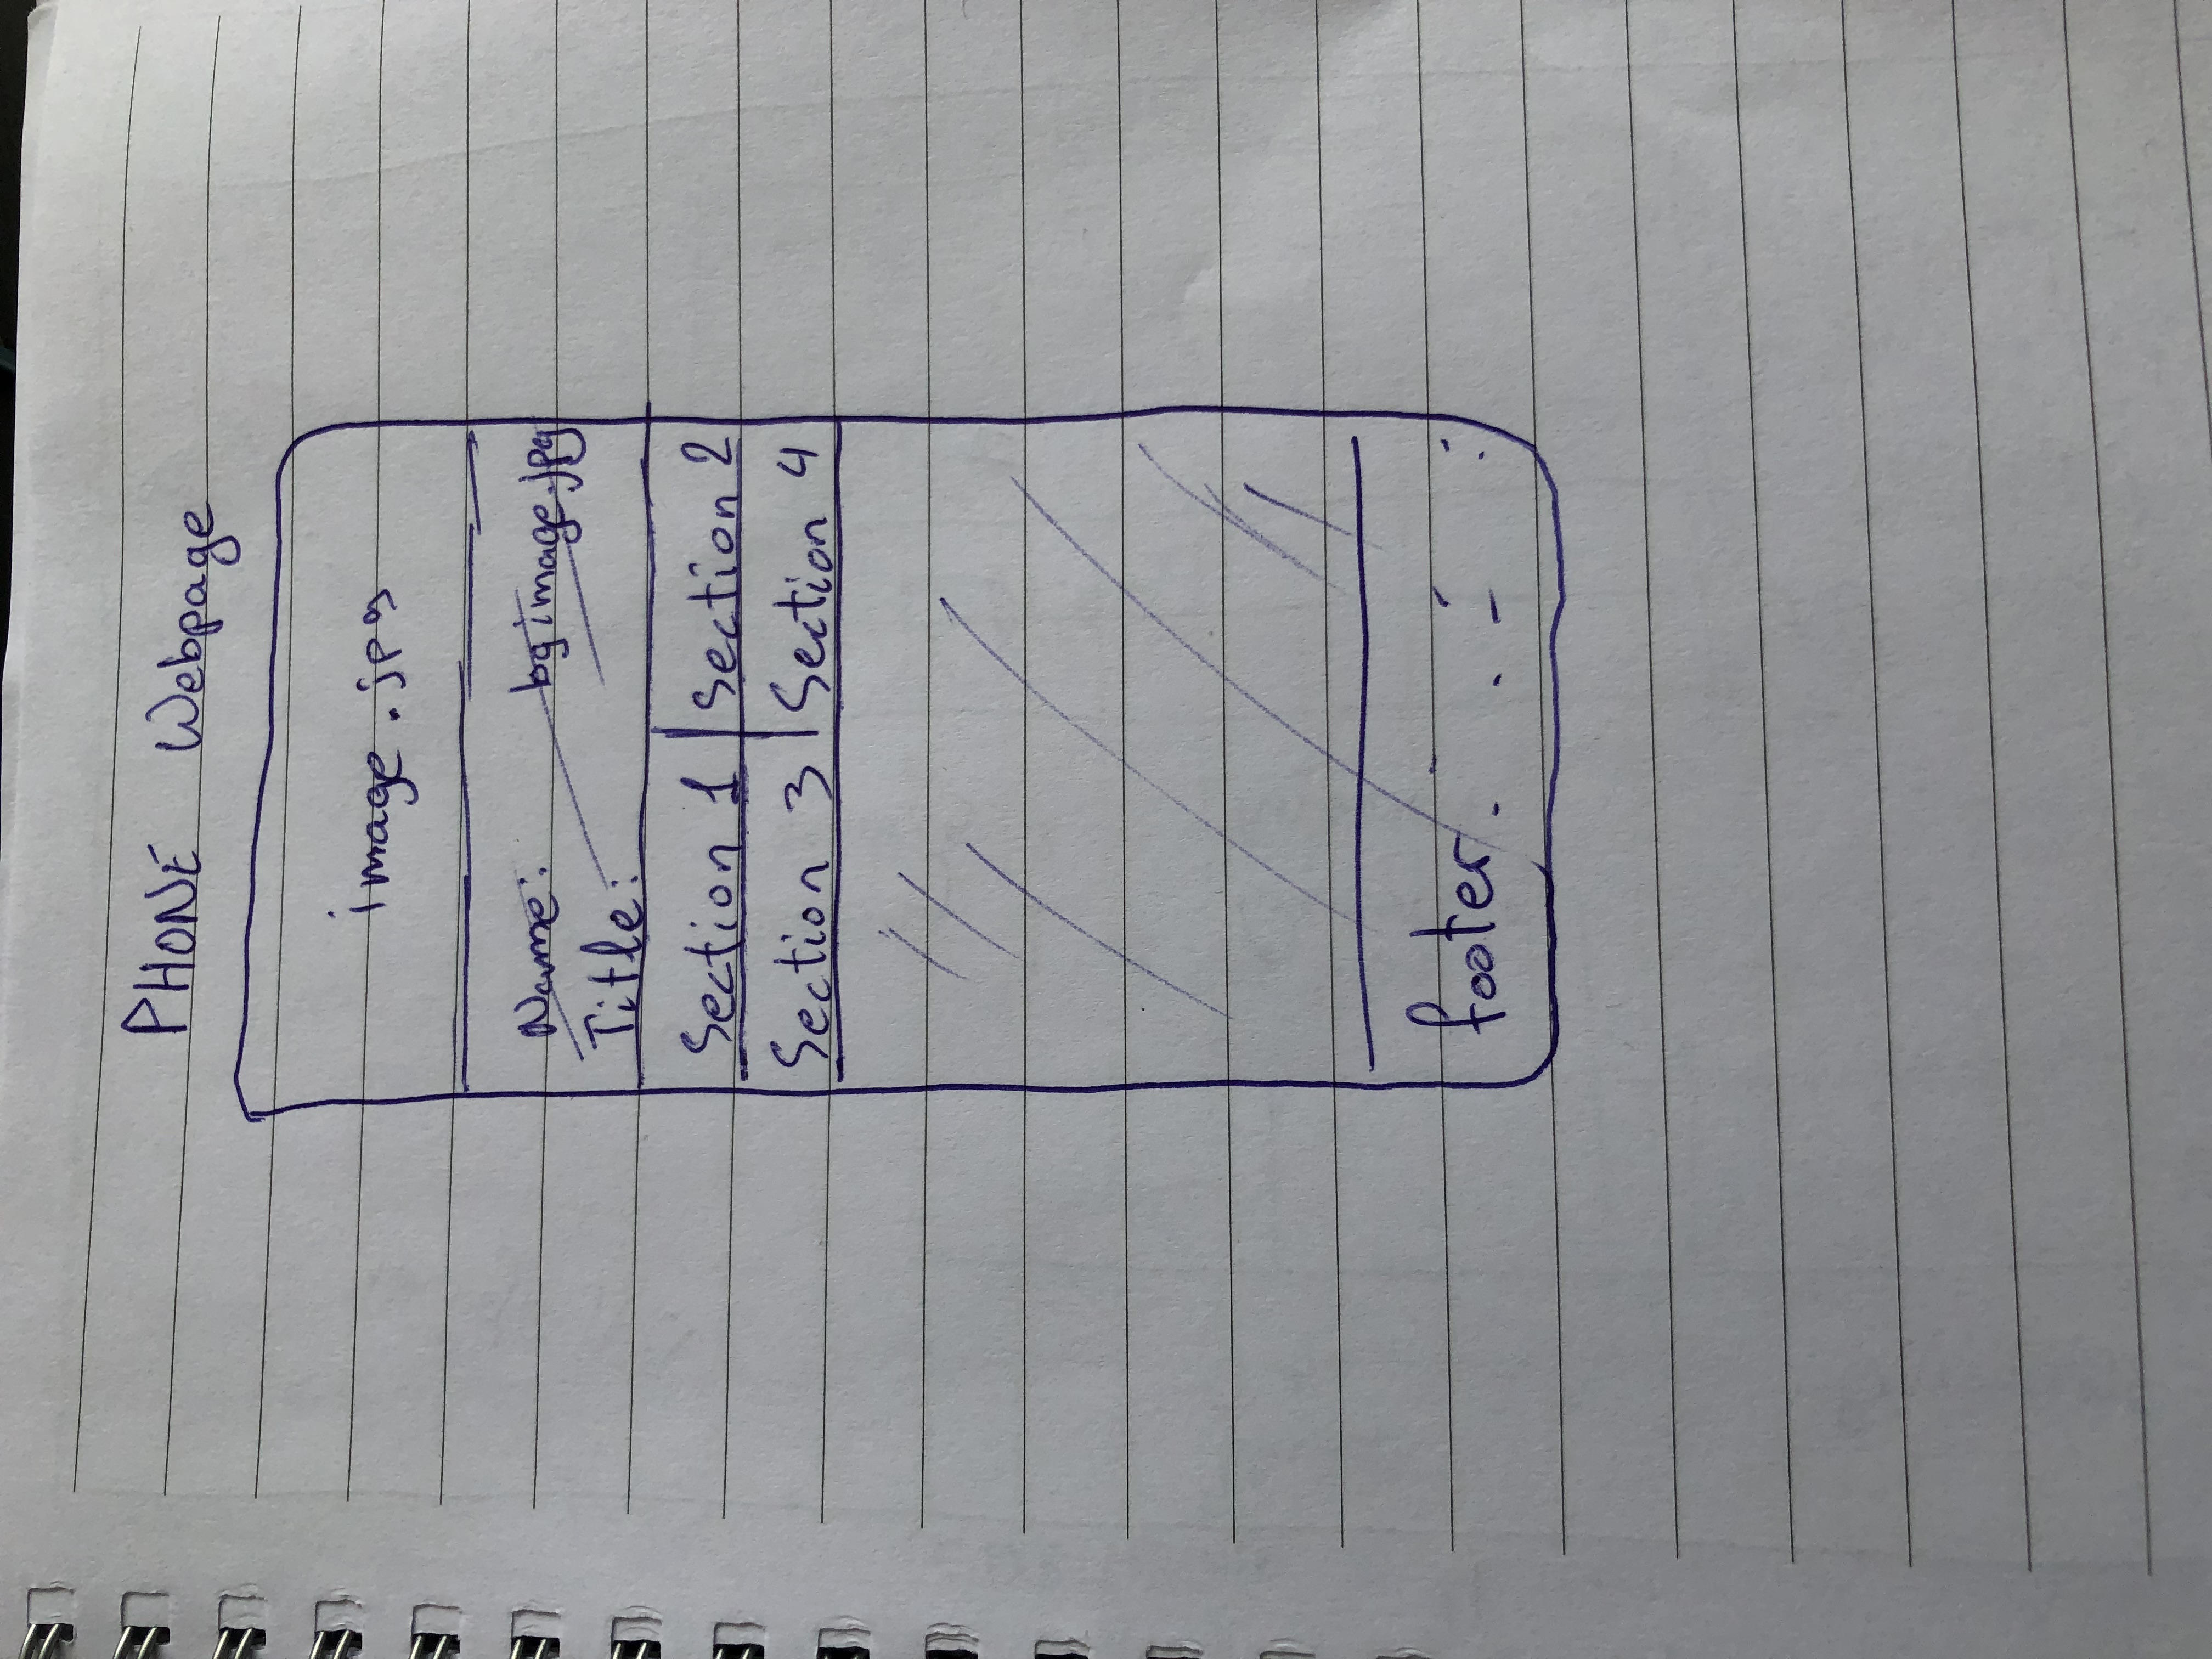 PHONE Webpage
image.jpg
Name: bgimage.jpg
Title:
Section 1 Section 2
Section 3 Section 4
footer.